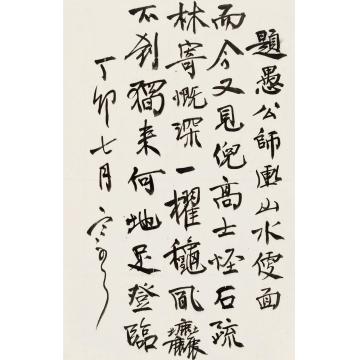 題愚公師畫山水便面
而今又見倪高士怪石疏
林寄慨深一櫂龝風
不到獨来何地足登臨
丁卯七月